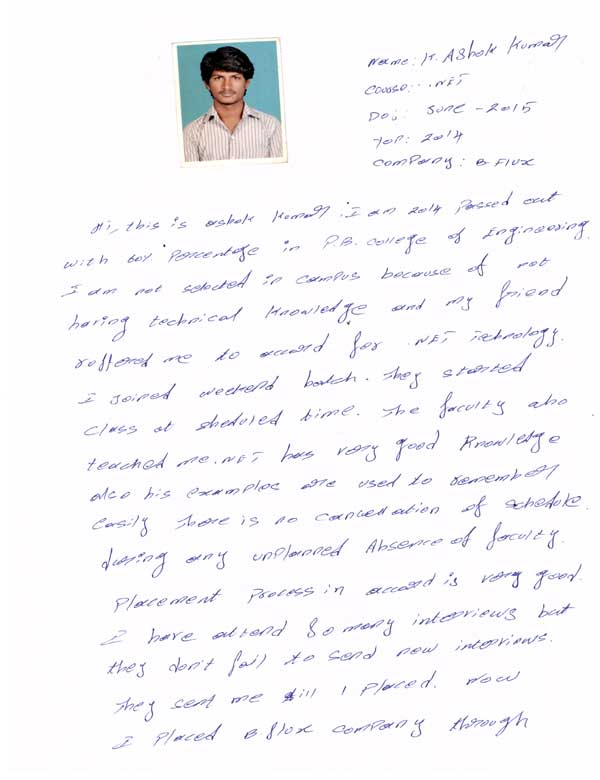 Name: K. Ashok Kumar
Course: .NET
DOJ: June - 2015
YOP: 2014
Company: B Flux
Hi, this is ashok kumar. I am 2014 passed out
with 60% percentage in P.B. college of Engineering.
I am not selected in campus because of not
having technical knowledge and my friend
reffered me to accord for .NET Technology.
I joined weekend batch. They started
class at sheduled time. The faculty who
teached me .NET has very good knowledge
also his examples are used to remember
easily There is no cancellation of schedule
during any unplanned Absence of faculty.
Placement Process in accord is very good.
I have attend so many interviews but
they don't fail to send new interviews.
They sent me till I placed. Now
I placed B flux company through